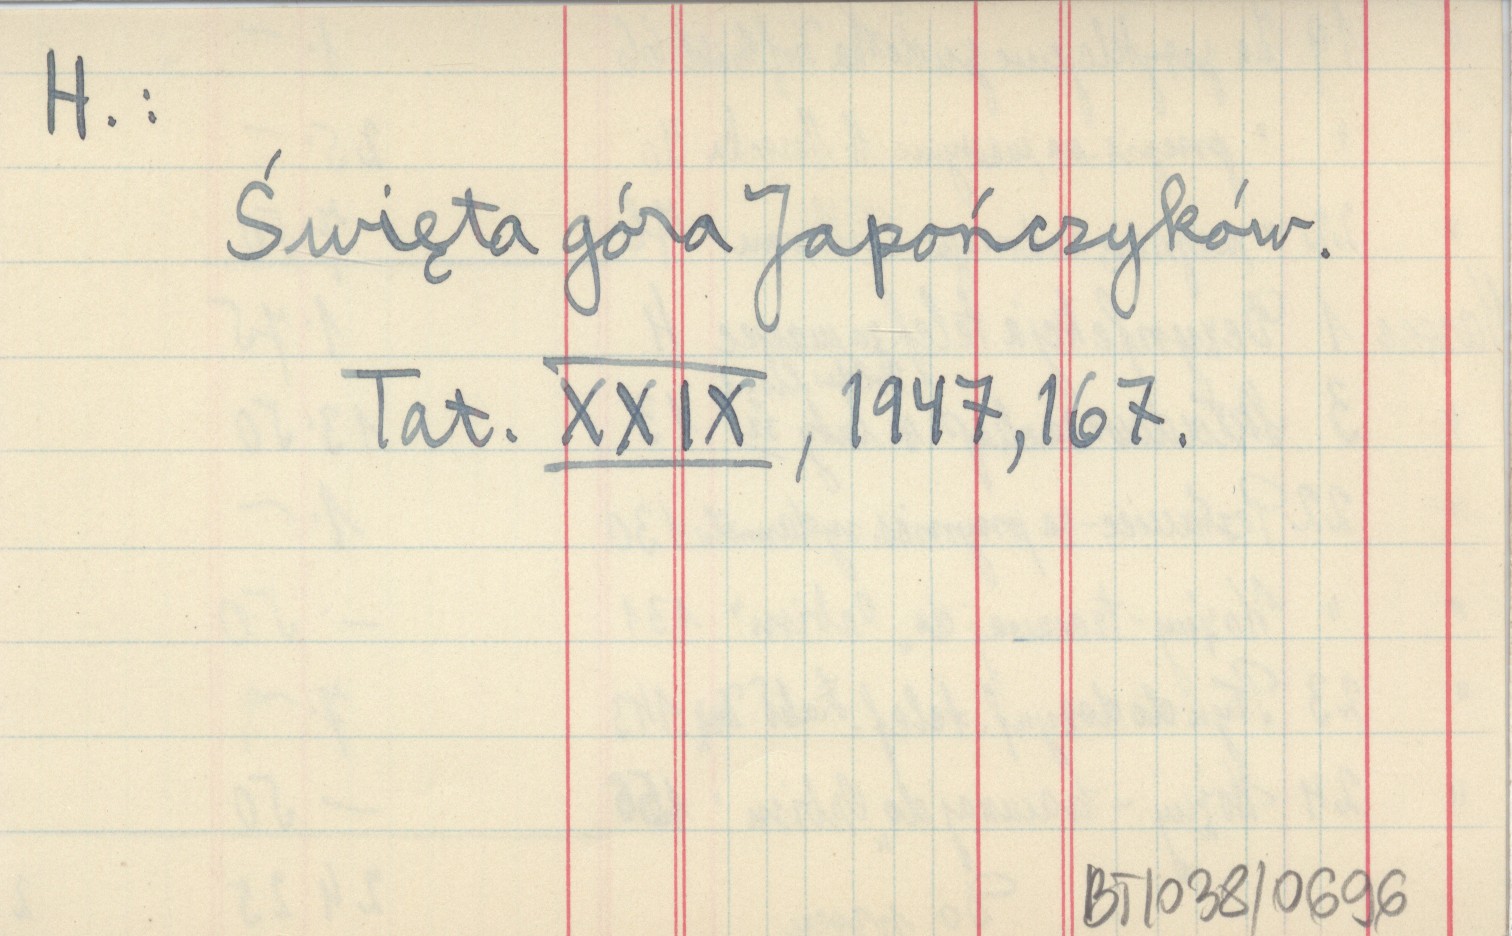 H.:
Święta góra Japończyków.
Tat. XXIX, 1947, 167.
BT/038/0696